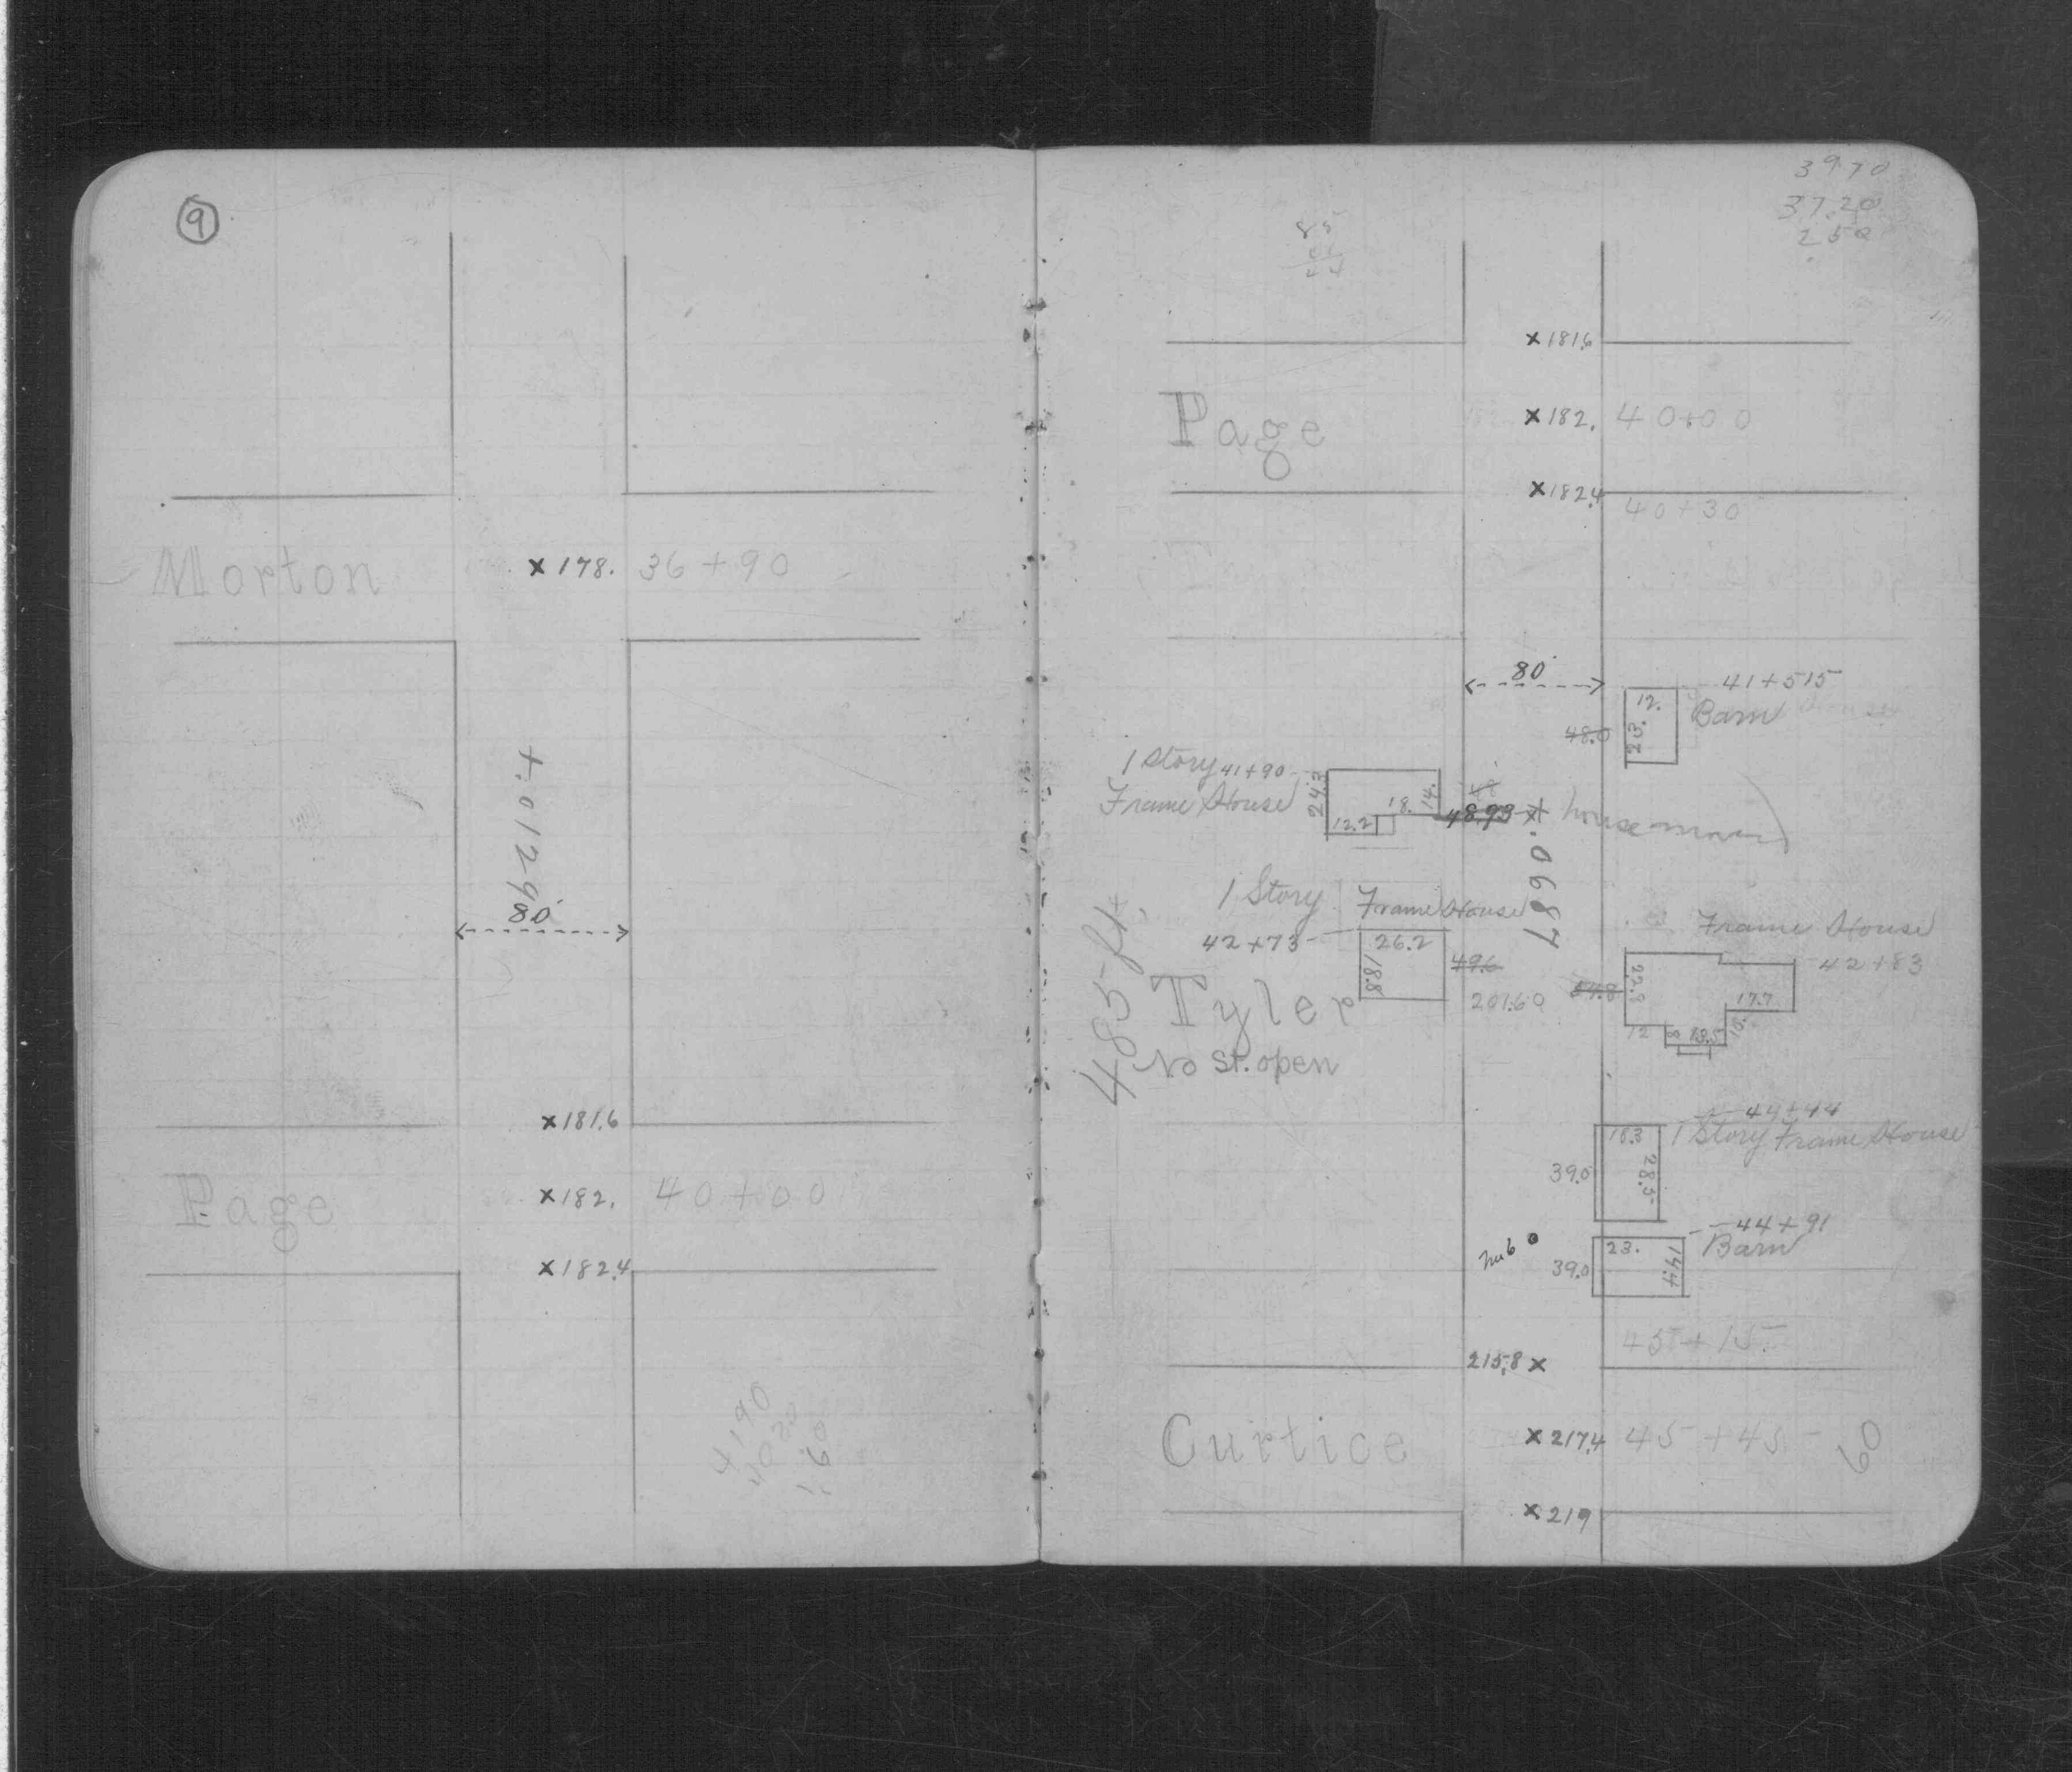 9
Morton
x 178. 36+90
+.01290
80'
x 181.6
Page
x 182. 40+00
x 182.4
4190
39.70
37.20
250
85
x 181.6
Page
x 182. 40+00
x 182.4
40+30
80'
41+515
12.
Barn
23.
48.0
1 Story 41+90
Frame House
24.3
18. 14.
12.2
48.93 x
house moved
+.0687
1 Story Frame House
42+73
26.2
18.8
49.6
207.60
485 ft.
Tyler
No St. open
Frame House
42+83
22.8
17.7
12 8 13.5 15.
44+44
1 Story Frame House
18.3
28.5
39.0
44+91
Barn
23.
14.4
39.0
hub
45+15.
215.8 x
Curtice
x 217.4 45+45
60
x 219